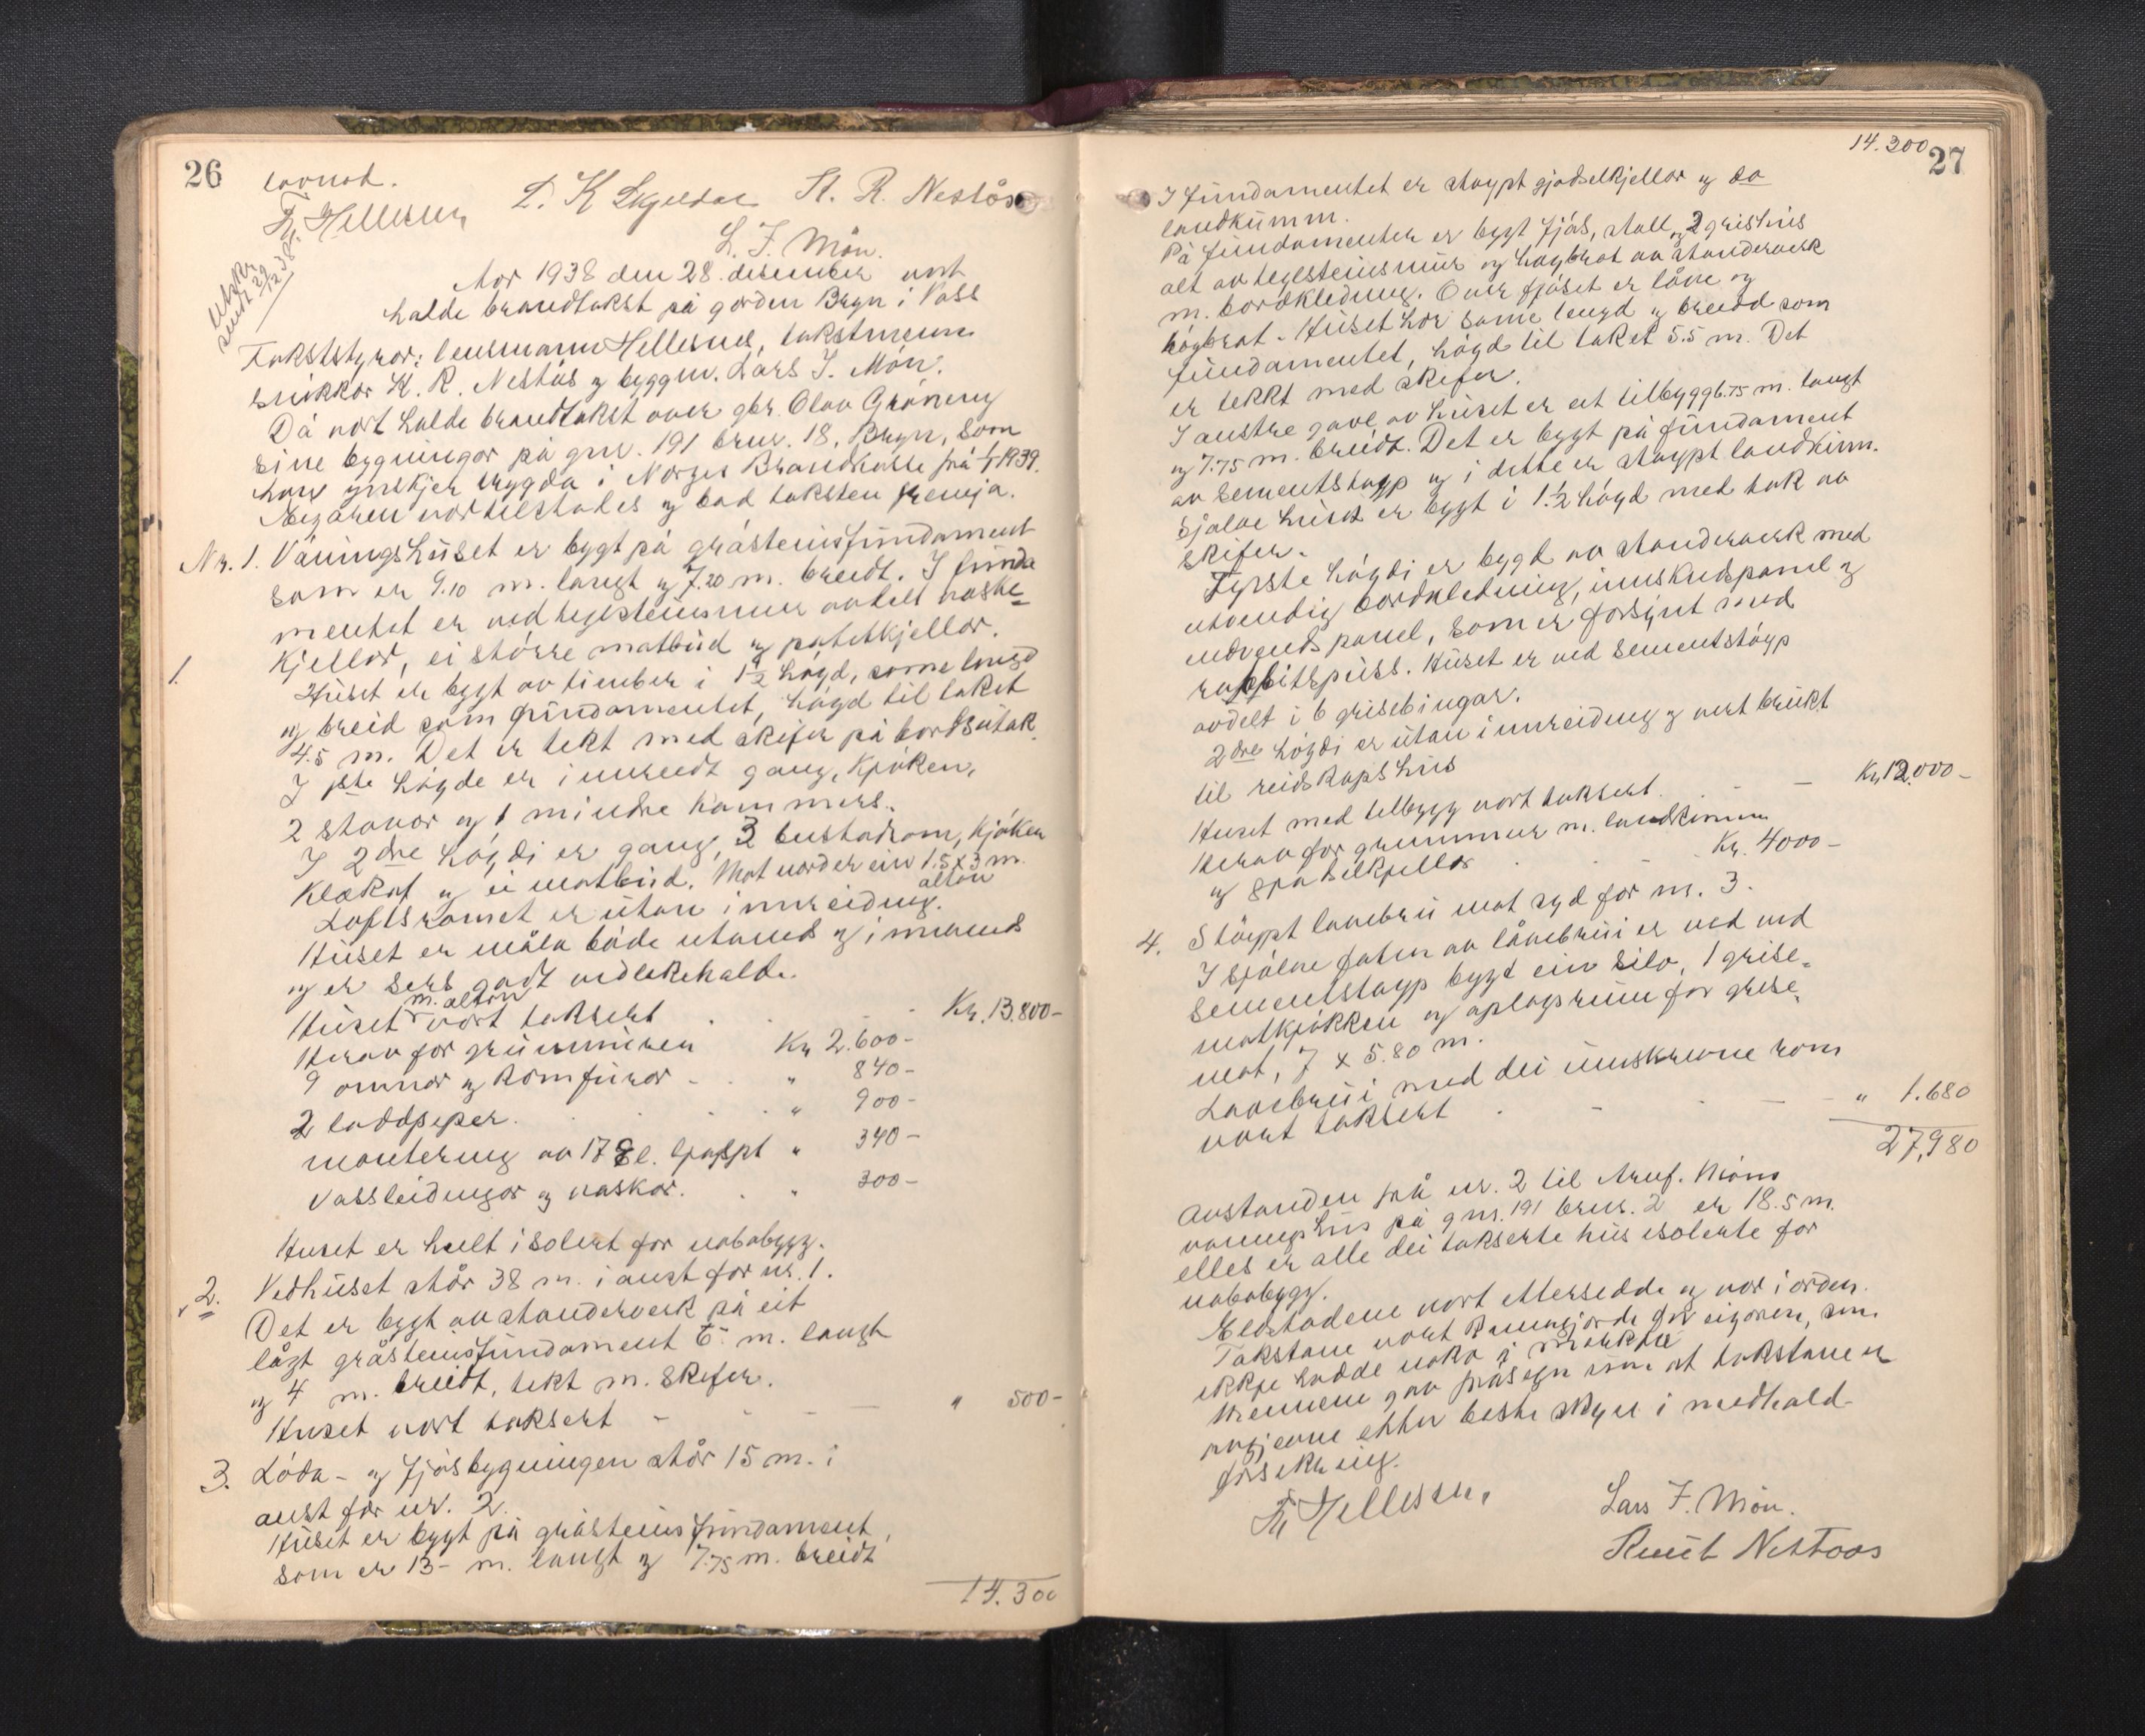 26
Th Hellesnes L. K. Skjeldal Kt. R. Nestås
L. J. Møn.
Utskr.
sendt 29/12 38.
Aar 1938 den 28. desember vart
halde brandtakst på garden Bryn i Voss
Takststyrar: lensmann Hellesnes, takstmenn
snikkar K. R. Nestås og byggm. Lars J. Møn.
Då vart halde brandtakst over gbr. Olav Gröneng
sine bygningar på gnr. 191 brnr. 18, Bryn, som
han ynskjer trygda i Norges Brandkasse frå 1/1 1939.
Eigaren var tilstades og bad taksten fremja.
Nr. 1. Våningshuset er bygt på gråsteinsfundament
som er 9.10 m. langt og 7.20 m. breidt. I funda
mentet er ved teglsteinsmur avdelt vaske-
1. kjellar, ei större matbud og potetkjellar.
Huset er bygt av timber i 1½ högd, same lengd
og breid som fundamentet, högd til taket
4.5 m. Det er tekt med skifer på bordsutak.
I 1ste högde er innreidt gang, kjöken,
2 stovor og 1 mindre kammers.
I 2dre högdi er gang, 3 bustadrom, kjöken
kleskot og ei matbud. Mot nord er ein 1.5 x 3 m.
altan
Loftsromet er utan innreiding.
Huset er måla både utanuds og innanuds
og er sers godt vedlikehalde.
m. altan
Huset vart taksert . . . Kr. 13.800-
Herav for grunnmuren Kr 2.600-
9 omnar og komfurar - . " 840-
2 loddpiper. . . . " 900-
montering av 17 el. ljospkt " 340-
Vassleidingar og vaskar. . " 300-
Huset er heilt isolert for nabobygg.
2. Vedhuset står 38 m. i aust for nr. 1.
Det er bygt av standerverk på eit
lågt gråsteinsfundament 6 m. langt
og 4 m. breidt, tekt m. skifer.
Huset vart taksert - - - — " 500-
3. Löda- og fjösbygningen står 15 m. i
aust for nr. 2.
Huset er bygt på gråsteinsfundament,
som er 13- m. langt og 7.75 m. breidt
14.300
14.300 27
I fundamentet er stöypt gjödselkjellar og do
landkumm.
På fundamentet er bygt fjös, stall, og 2 grishus
alt av teglsteinsmur og höybrot av standerverk
m. bordkledning. Over fjöset er låve og
höybrot. Huset har same lengd og breidd som
fundamentet, högd til taket 5.5 m. Det
er tekt med skifer.
I austre gavl av huset er eit tilbygg 6.75 m. langt
og 7.75 m. breidt. Det er bygt på fundament
av sementstöyp og i dette er stöypt landkum.
Sjölve huset er bygt i 1½ högd med tak av
skifer.
Fyrste högdi er bygd av standerverk med
utvendig bordkledning, innskudspanel og
indvends panel, som er forsynt med
rabbitspuss. Huset er ved sementstöyp
avdelt i 6 grisebingar.
2dre högdi er utan innreiding og vert brukt
til reidskapshus
Huset med tilbygg vart taksert. - — Kr 12.000-
Herav for grunnmur m. landkumm
og gjödselkjellar . . - Kr. 4000-
4. Stöypt lånebru mot syd for nr. 3.
I sjölve foten av lånebrui er ved ved
sementstöyp bygd ein silo, 1 grise-
matkjökken og oplagsrum for grise-
mat, 7 x 5.80 m.
Lånebrui med dei innskrevne rom
vart taksert . - - — " 1.680
27,980
Avstanden frå nr. 2 til Arnf. Möns
våningshus på gnr. 191 brnr. 2 er 18.5 m.
elles er alle dei takserte hus isolerte for
nabobygg.
Eldstadene vart ettersedde og var i orden.
Takstane vart kunngjorde for eigaren, som
ikkje hadde noko å merkja
Mennene gav fråsegn um at takstane er
avgjevne etter beste skyn i medhald-
forsikring.
Th Hellesnes Lars J. Møn.
Knut Nestaas